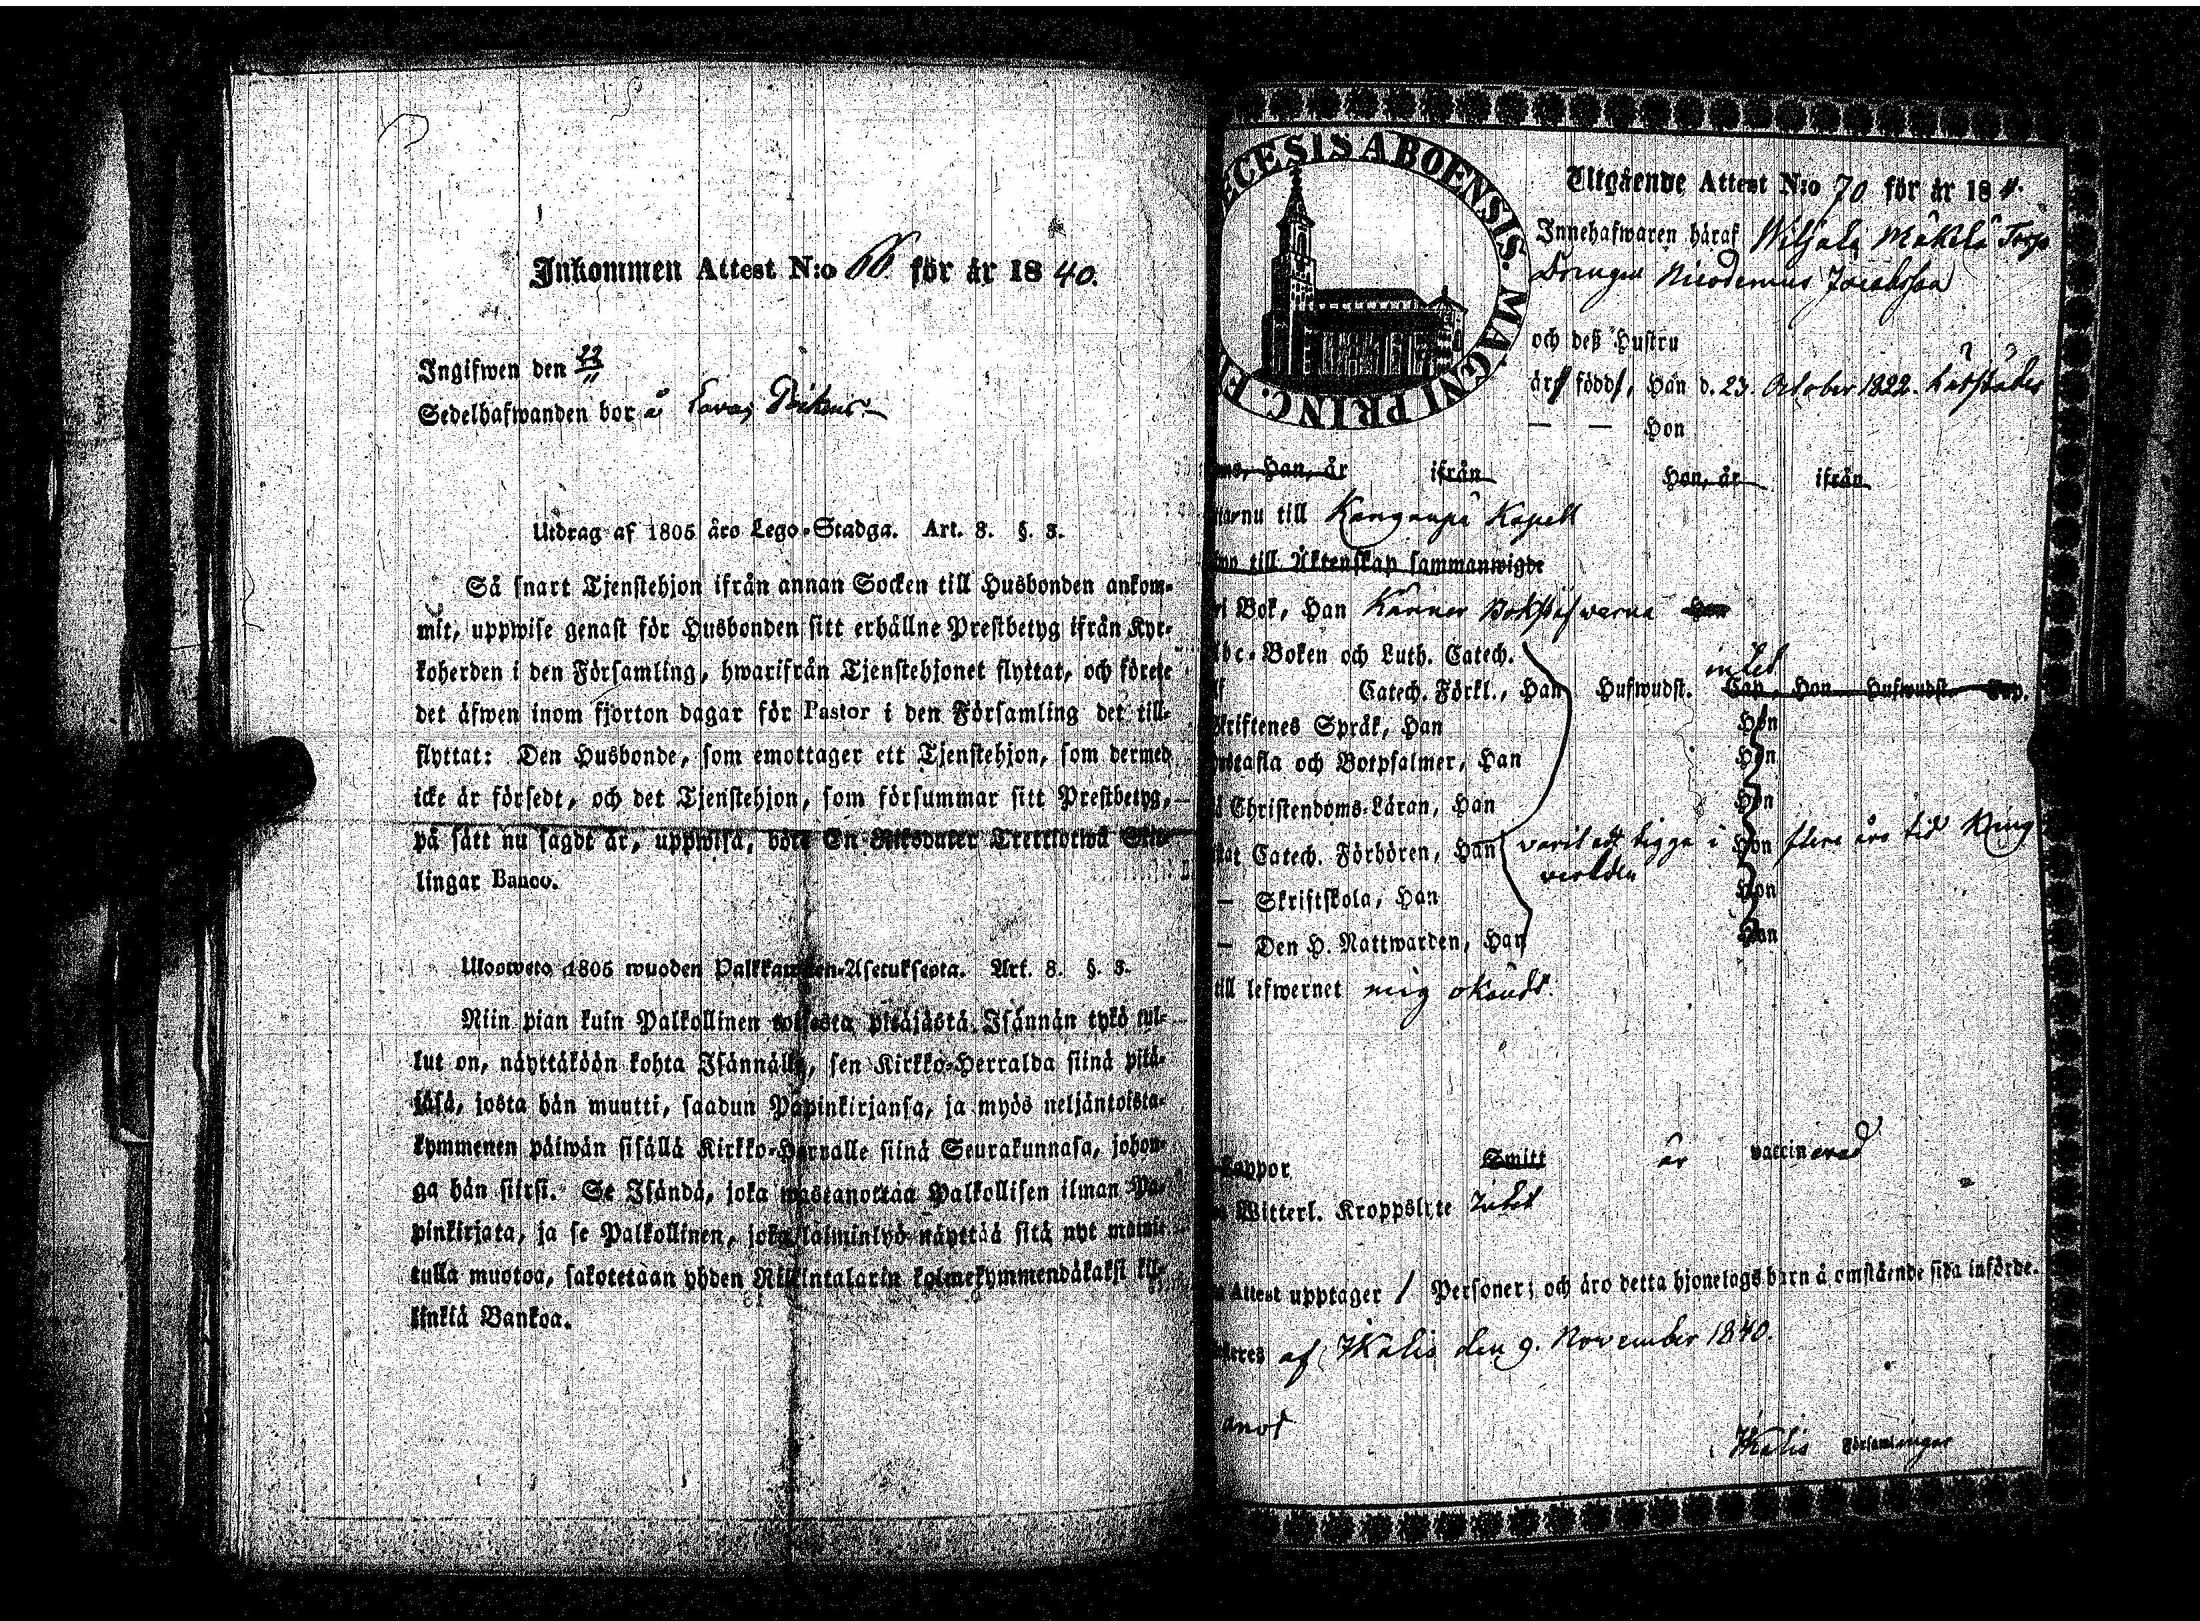 Inkommen Attest N:o 66 för år 1840.
Ingifwen den 22/11
Sedelhafwanden bor å
Utdrag af 1805 års Lego-Stadga. Art. 8. §. 3.
Så snart Tjenstehjon ifrån annan Socken till Husbonden ankom-
mit, uppwise genast för Husbonden sitt erhållne Prestbetyg ifrån Kyr-
koherden i den Församling, hwarifrån Tjenstehjonet flyttat, och förete
det äfwen inom fjorton dagar för Pastor i den Församling det till-
flyttat: Den Husbonde, som emottager ett Tjenstehjon, som dermed
icke är försedt, och det Tjenstehjon, som försummar sitt Prestbetyg,
på sätt nu sagdt är, uppwisa, böte En Riksdaler Trettiotwå Skil-
lingar Banco.
Ulosweto 1805 wuoden Palkkawäen-Asetuksesta. Art. 8. §. 3.
Niin pian kuin Palkollinen toisesta pitäjästä Isännän tykö tul-
lut on, näyttäköön kohta Isännälle, sen Kirkko-Herralda siinä pitä-
jäsä, josta hän muutti, saadun Papinkirjansa, ja myös neljäntoista-
kymmenen päiwän sisällä Kirkko-Herralle siinä Seurakunnasa, johon-
ga hän siirsi. Se Isändä, joka wastanottaa Palkollisen ilman Pa-
pinkirjata, ja se Palkollinen, joka laiminlyö näyttää sitä nyt mainit-
tulla muotoa, sakotetaan yhden Riikintalarin kolmekymmendäkaksi kil-
linkiä Bankoa.
ECESIS ABOENSIS. MAGNI PRINC. FI
Utgående Attest N:o 70 för år 184
Innehafwaren häraf Wiljala Mäkelä Torp
Drengen Nicodemus Jacobsson
och deß Hustru
är född, Han d. 23. October 1822.
— — Hon
Han, år ifrån Hon, år ifrån
nu till Kangaspä Kapell
till Äktenskap sammanwigde
i Bok, Han Känner Bokstäfwarna Hon
Abc-Boken och Luth. Catech.
intet
Catech. Förkl., Han Hufwudst. Cap. Hon Hufwudst. Cap.
Skriftenes Språk, Han Hon
Hustafla och Botpsalmer, Han Hon
Christendoms-Läran, Han Hon
Catech. Förhören, Han varit att tigga i Hon flere års tid kring
verlden
— Skriftskola, Han Hon
— Den H. Nattwarden, Han Hon
till lefwernet mig okändt.
Koppor Smitt är vaccinerad
Witterl. Kroppslyte Intet
Attest upptager 1 Personer; och äro detta hjonelags barn å omstående sida införde.
af Ikalis den 9. November 1840.
Ikalis Församlingar